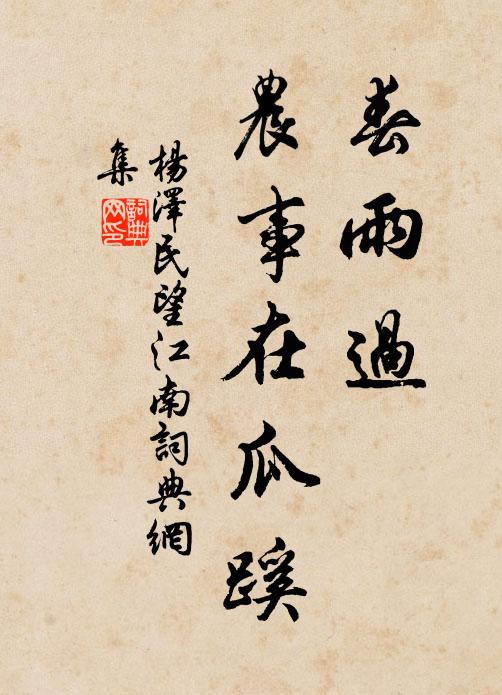 春雨過
農事在瓜蹊
楊澤民望江南詞典網
集
詞典
网印